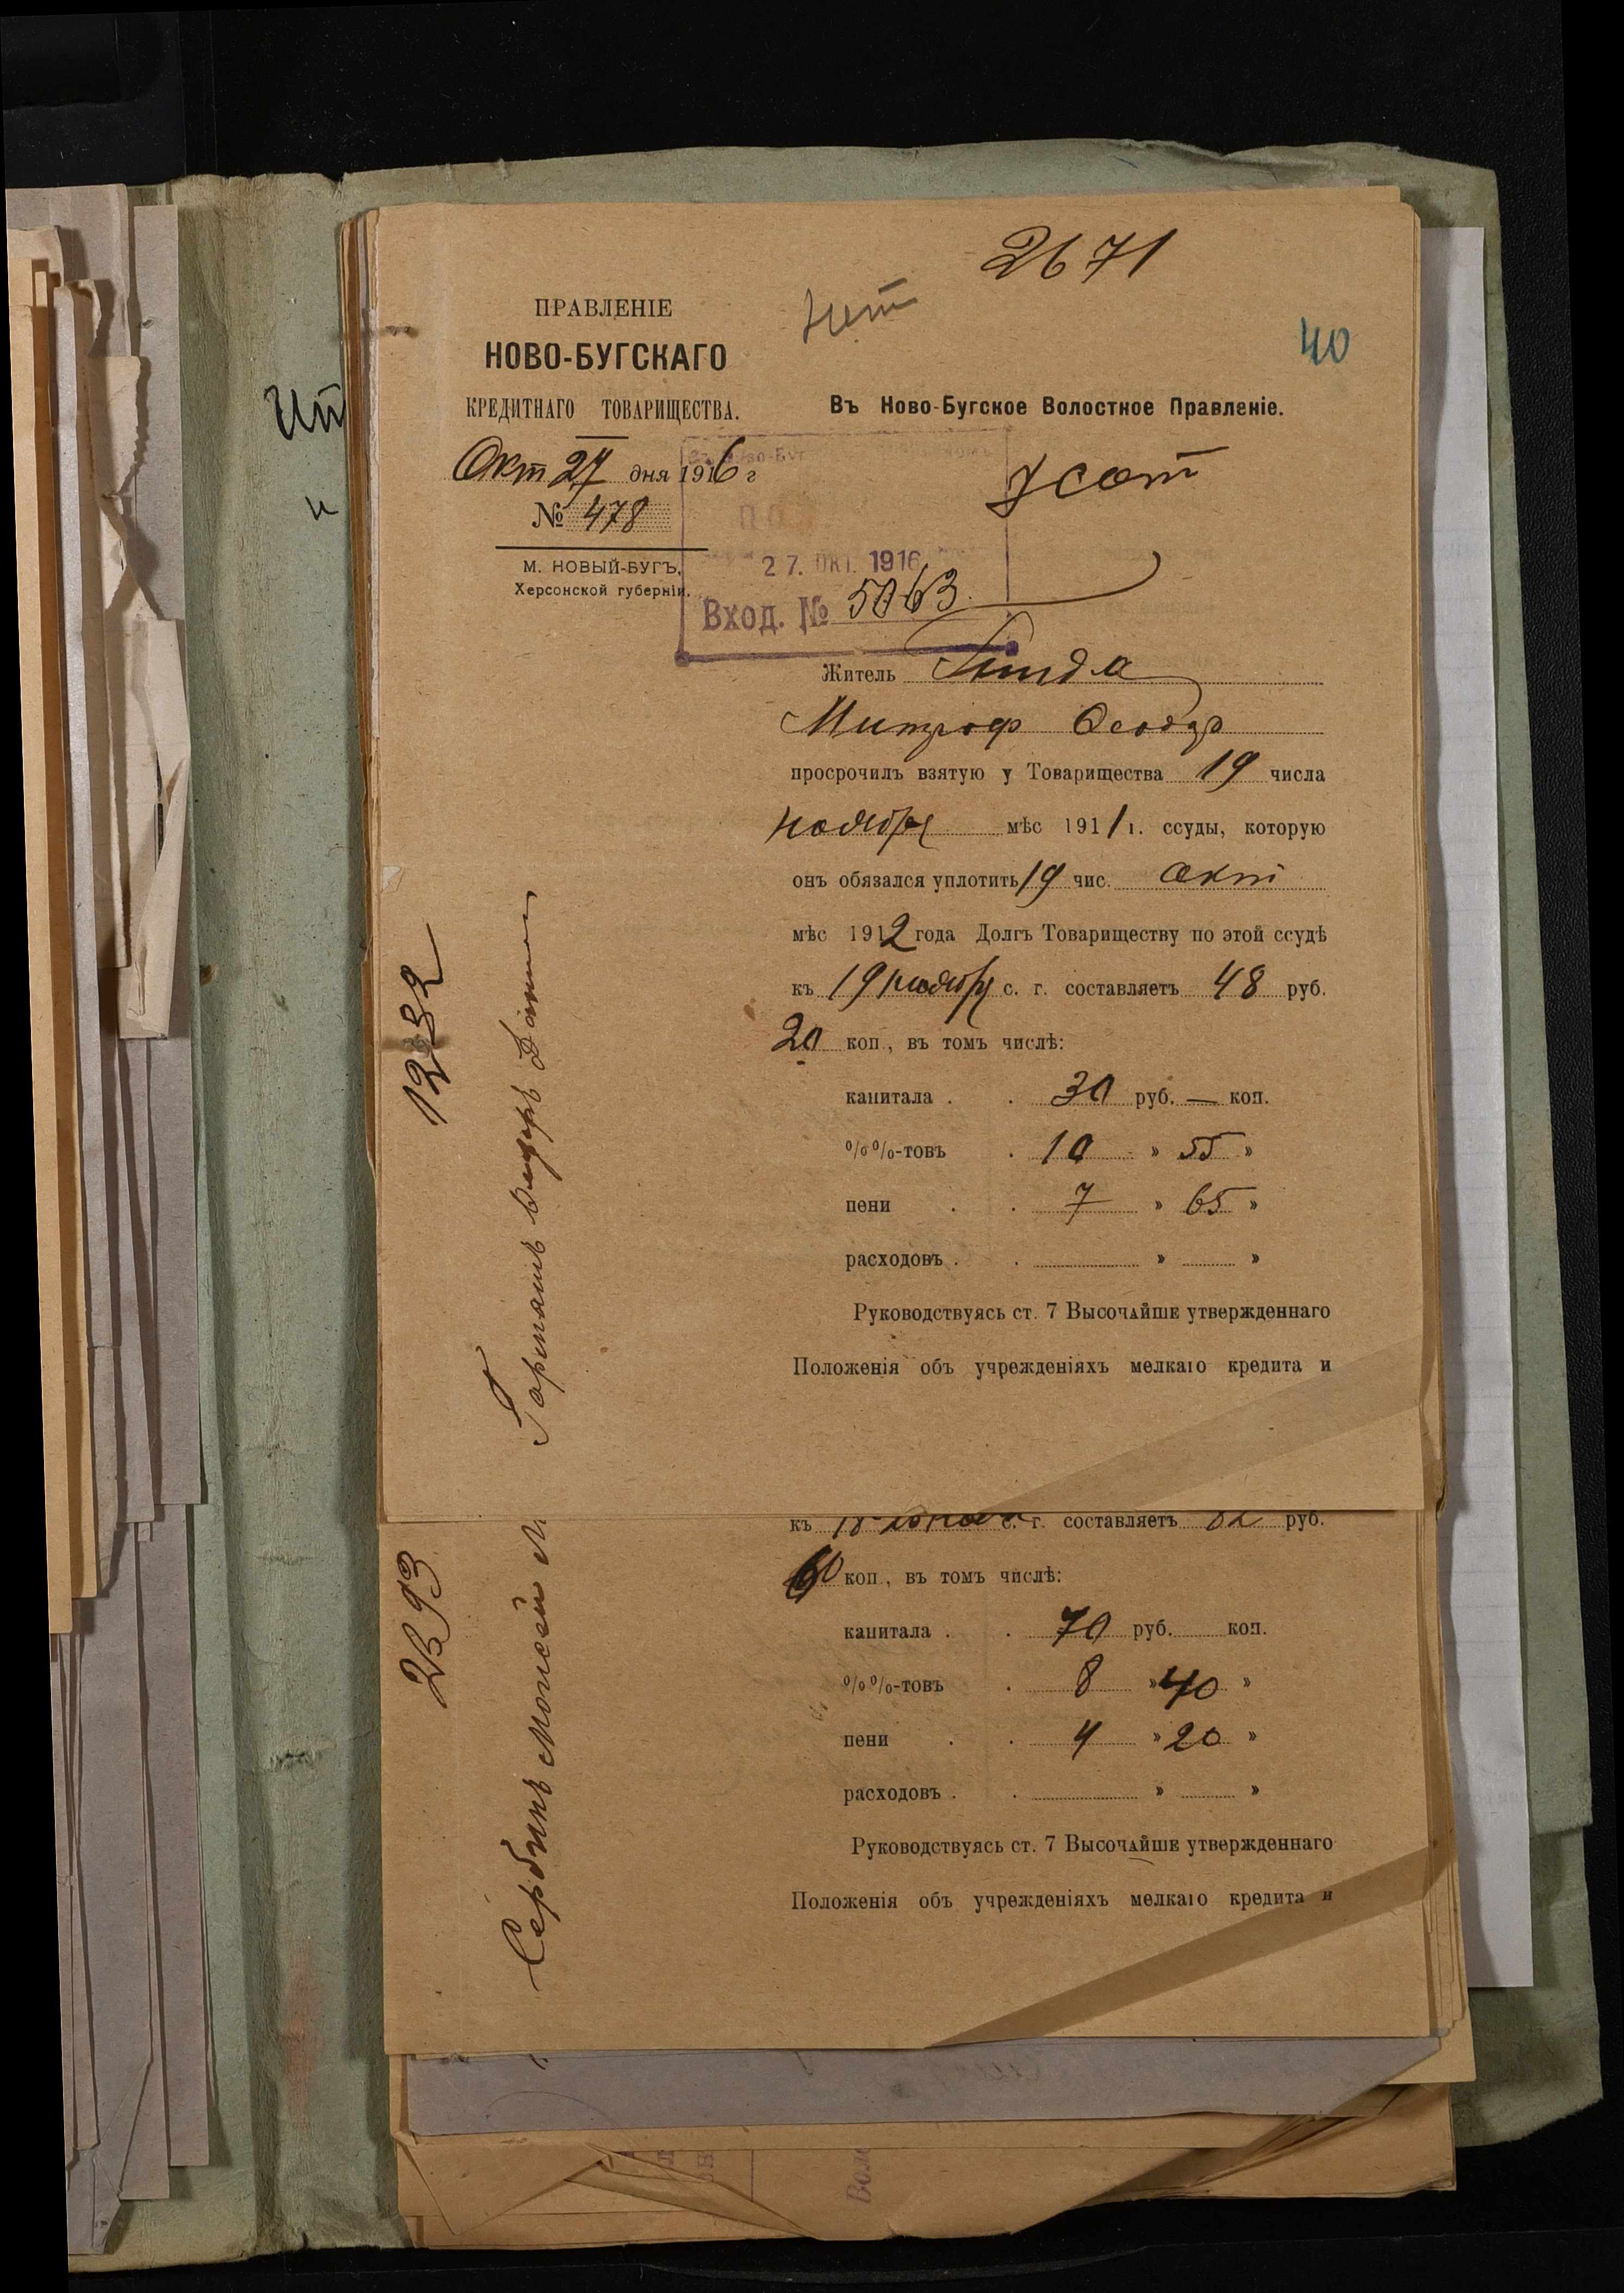 2671
нет
40
ПРАВЛЕНІЕ
НОВО-БУГСКАГО
КРЕДИТНАГО ТОВАРИЩЕСТВА.
Въ Ново-Бугское Волостное Правленіе.
Окт 27 дня 1916 г
№ 478
7 сот
М. НОВЫЙ-БУГЪ,
Херсонской губерніи.
27. ОКТ. 1916
Вход. № 5063
Житель
Митроф Ѳеодор
просрочилъ взятую у Товарищества 19 числа
ноября мѣс 1911 г. ссуды, которую
онъ обязался уплотить 19 чис. Окт
мѣс 1912 года Долгъ Товариществу по этой ссудѣ
къ 19 ноября с. г. составляетъ 48 руб.
20 коп, въ томъ числѣ:
капитала . . 30 руб. — коп.
%%-товъ . 10 » 55 »
пени . . 7 » 65 »
расходовъ . . » »
Руководствуясь ст. 7 Высочайше утвержденнаго
Положенія объ учрежденіяхъ мелкаго кредита и
1232
къ с. г. составляетъ 82 руб.
60 коп, въ томъ числѣ:
капитала . . 70 руб. коп.
%%-товъ . 8 » 40 »
пени . . 4 » 20 »
расходовъ . . » »
Руководствуясь ст. 7 Высочайше утвержденнаго
Положенія объ учрежденіяхъ мелкаго кредита и
Сербинъ Моисей